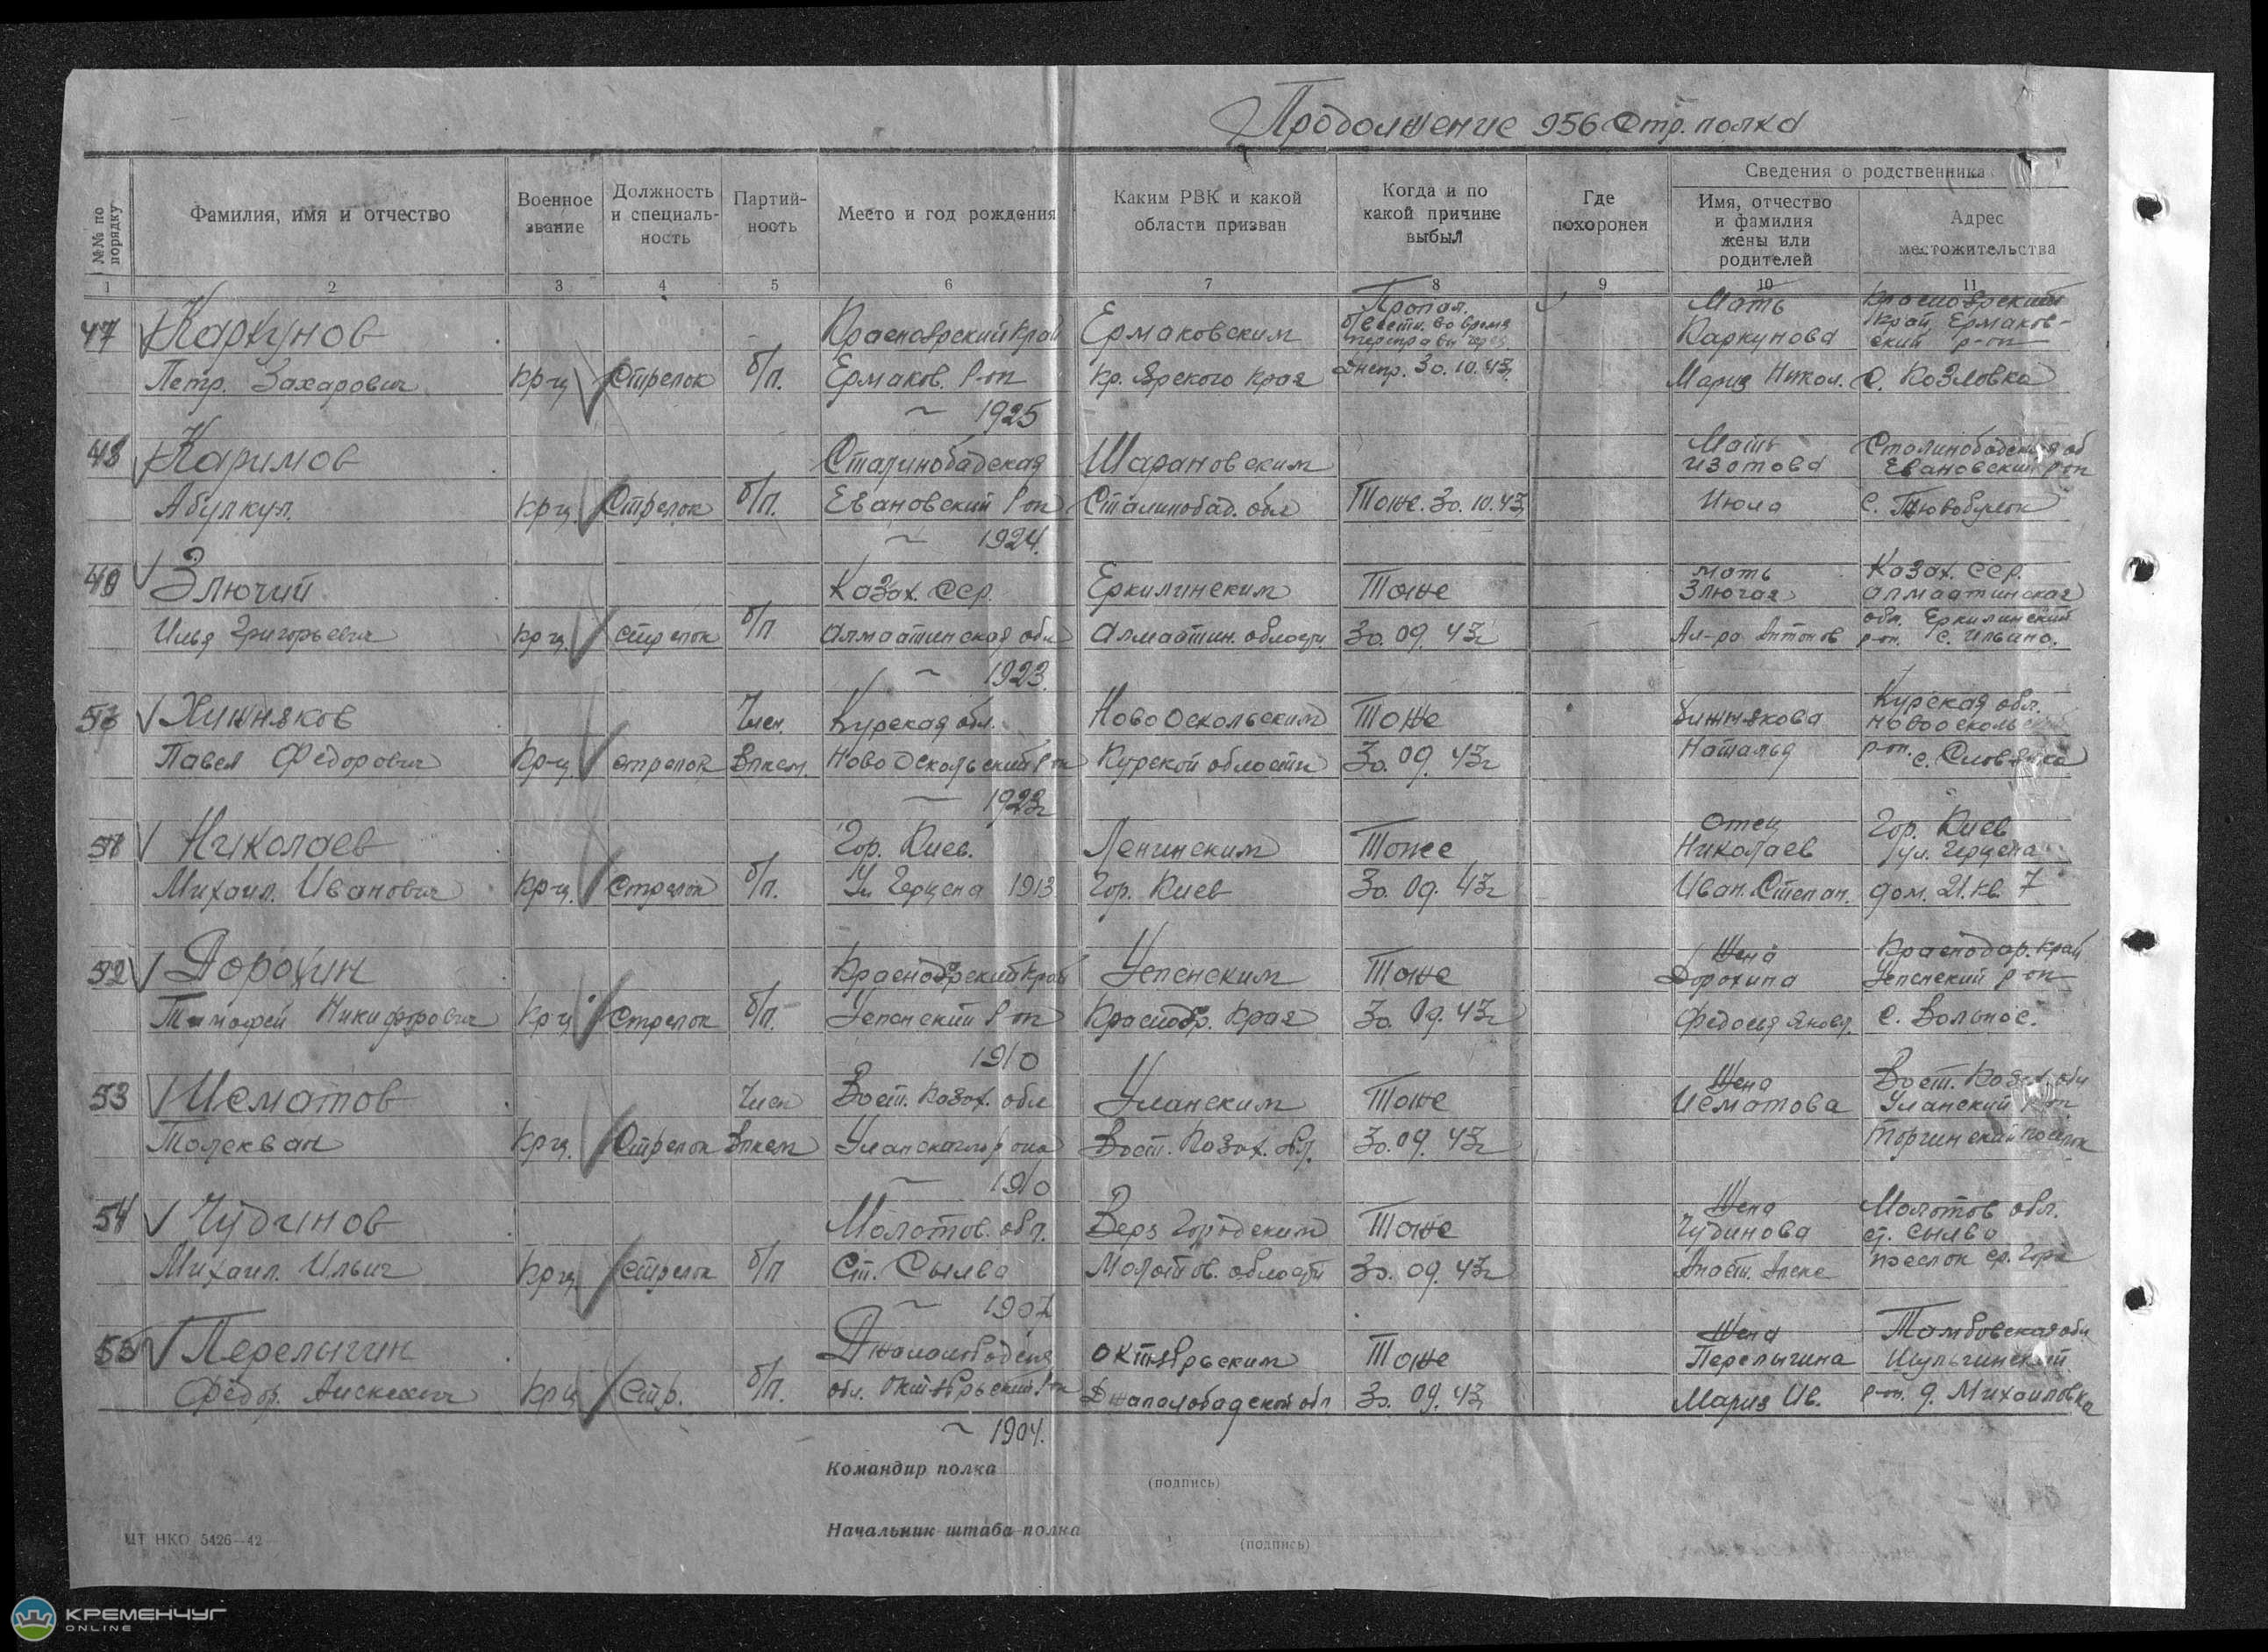 Продолжение 956 Стр. полка
№№ по порядку
Фамилия, имя и отчество
Военное звание
Должность и специаль-ность
Партий-ность
Место и год рождения
Каким РВК и какой области призван
Когда и по какой причине выбыл
Где похоронен
Сведения о родственника
Имя, отчество и фамилия жены или родителей
Адрес местожительства
1 2 3 4 5 6 7 8 9 10 11
47 Каркунов Красноярский край Ермаковским Пропал. Мать Красноярский
б/вести во время Каркунова край, Ермаков-
переправы через ский р-он
Петр. Захарович кр-ц Стрелок б/п. Ермаков. р-он Кр. Ярского края Днепр. 30.10.43 Мария Никол. с. Козловка
~ 1925
48 Каримов Сталинобадская Шарановским Мать Сталинобадская об
Изотова Евановский р-он
Абулкул. кр-ц Стрелок б/п. Евановский р-он Сталинобад. обл Тоже. 30.10.43 Июла с.
~ 1924.
49 Злючий Казах. сср. Еркилинским Тоже мать Казах. сср.
Злючая Алмаатинская
Илья Григорьевич кр-ц стрелок б/п Алмаатинская обл Алмаатин. области 30.09.43г Ал-ра Антонов обл. Еркилинский
р-он. с. Ильино.
~ 1923.
50 Хижняков Член Курская обл. Ново Оскольским Тоже Хижнякова Курская обл.
Новооскольский
Павел Федорович Кр-ц стрелок Влксм. Ново Оскольский р-он Курской области 30.09.43г Наталья р-он. с. Словянка
1923г
51 Николаев Гор. Киев. Ленинским Тоже Отец Гор. Киев
Николаев ул. Герцена
Михаил. Иванович Кр-ц. Стрелок б/п. Ул Герцена 1913 Гор. Киев 30.09.43г Иван. Степан. дом. 21. кв. 7
52 Дорохин Краснодарский край Успенским Тоже Жена Краснодар. край
Дорохина Успенский р-он
Тимофей Никифорович Кр-ц Стрелок б/п. Успенский р-он Краснодар. края 30.09.43г Федосия Яковл. с. Вольное.
1910
53 Исматов Член Вост. Казах. обл Уланским Тоже Жена Вост. Казах. обл
Исматова Уланский р-он
Толекван Кр-ц. Стрелок Влксм Вост. Казах. обл. 30.09.43г Торгинский поселок
~ 1910
54 Чудинов Молотов. обл. Верх Городским Тоже Жена Молотов обл.
Чудинова ст. Сылва
Михаил. Ильич Кр-ц Стрелок б/п Ст. Сылва Молотов. области 30.09.43г поселок ср. Гора
~ 1907
55 Перелыгин Джалалободская Октябрьским Тоже Жена Тамбовская обл
Перелыгина Шульгинский
Федор. Алексеевич Кр-ц Стр. б/п. обл. Октябрьский р-он Джалалобадской обл 30.09.43 Мария Ив. р-он. д. Михаиловка
~ 1904.
Командир полка
(подпись)
Начальник штаба полка
(подпись)
ЦТ НКО 5426—42
КРЕМЕНЧУГ
ONLINE